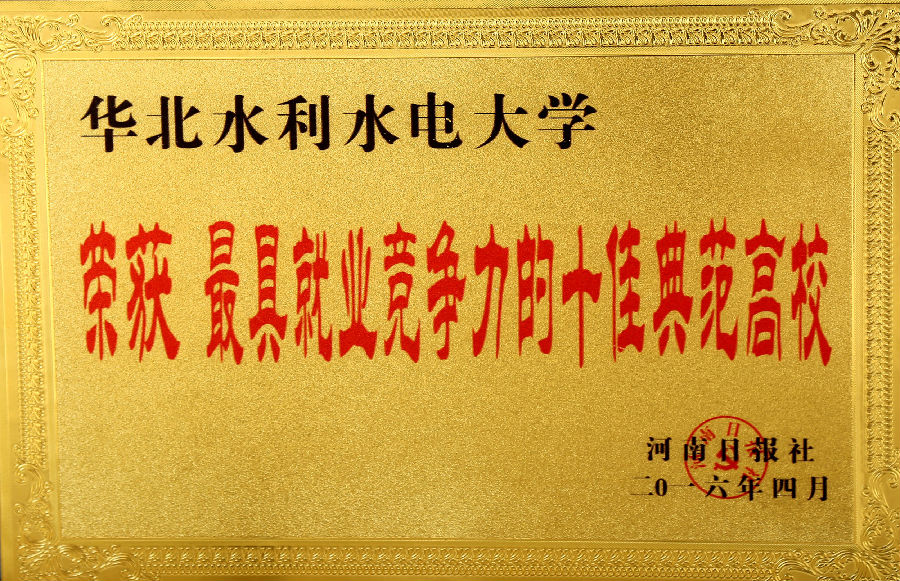 华北水利水电大学
荣获 最具就业竞争力的十佳典范高校
河南日报社
二0一六年四月